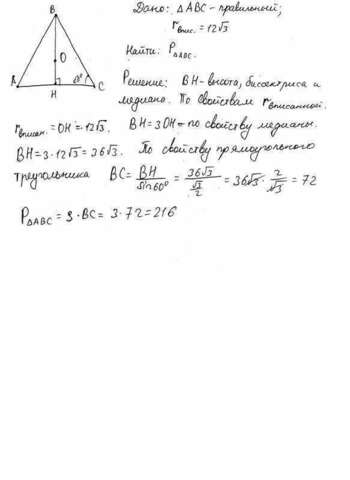 Дано: △ABC - правильный;
rвпис. = 12√3
Найти: P△ABC.
B
O
A
H
60°
C
Решение: BH - высота, биссектриса и
медиана. По свойствам rвписанной.
rвписан. = OH = 12√3. BH = 3OH - по свойству медианы.
BH = 3 · 12√3 = 36√3. По свойству прямоугольного
треугольника BC = BH/sin60° = 36√3/(√3/2) = 36√3 · 2/√3 = 72
P△ABC = 3 · BC = 3 · 72 = 216